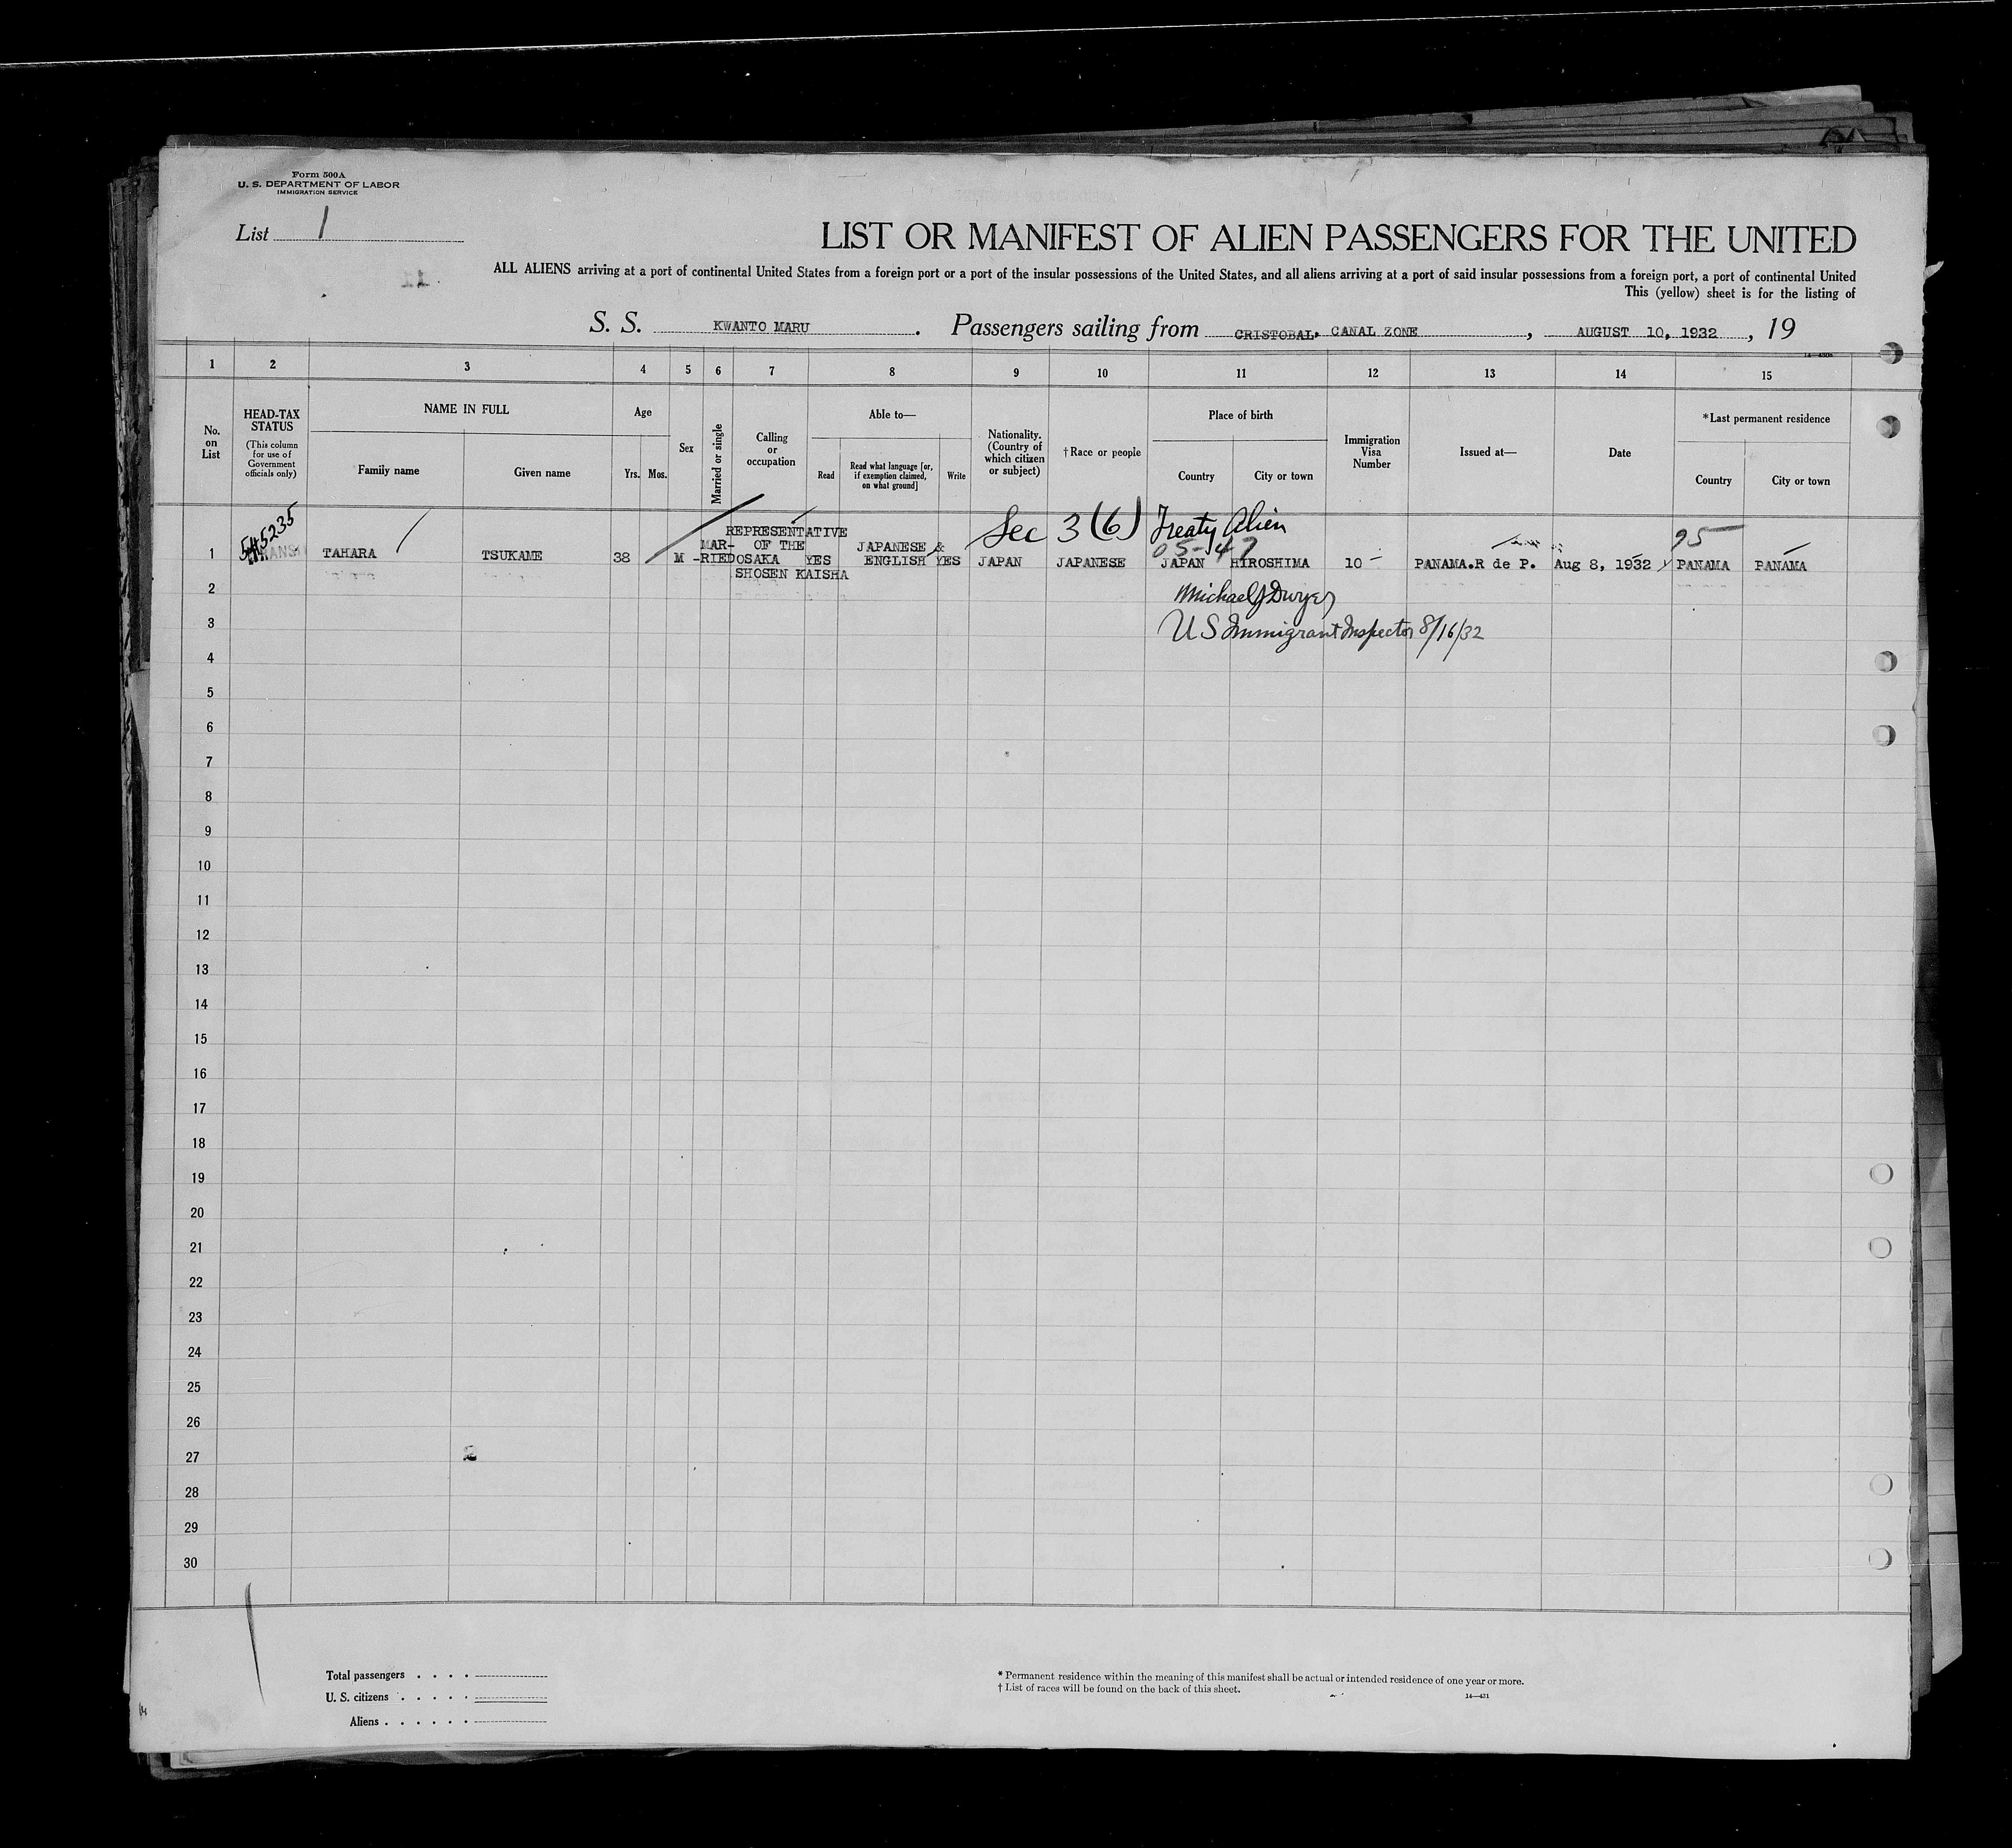 Form 500A
U. S. DEPARTMENT OF LABOR
IMMIGRATION SERVICE
List 1
LIST OR MANIFEST OF ALIEN PASSENGERS FOR THE UNITED
ALL ALIENS arriving at a port of continental United States from a foreign port or a port of the insular possessions of the United States, and all aliens arriving at a port of said insular possessions from a foreign port, a port of continental United
This (yellow) sheet is for the listing of
S. S. KWANTO MARU . Passengers sailing from CRISTOBAL, CANAL ZONE , AUGUST 10, 1932 , 19
1 2 3 4 5 6 7 8 9 10 11 12 13 14 15
No. on List
HEAD-TAX STATUS
(This column for use of Government officials only)
NAME IN FULL
Family name Given name
Age
Yrs. Mos.
Sex
Married or single
Calling or occupation
Able to—
Read
Read what language [or, if exemption claimed, on what ground]
Write
Nationality. (Country of which citizen or subject)
†Race or people
Place of birth
Country City or town
Immigration Visa Number
Issued at—
Date
*Last permanent residence
Country City or town
545235
Sec 3(6) Treaty Alien
05-47
95
1 TAHARA TSUKAME 38 M MAR-RIED REPRESENTATIVE OF THE OSAKA SHOSEN KAISHA YES JAPANESE & ENGLISH YES JAPAN JAPANESE JAPAN HIROSHIMA 10 PANAMA.R de P. Aug 8, 1932 PANAMA PANAMA
Michael J Dwyer
US Immigrant Inspector 8/16/32
2
3
4
5
6
7
8
9
10
11
12
13
14
15
16
17
18
19
20
21
22
23
24
25
26
27
28
29
30
Total passengers . . . .
U. S. citizens . . . . .
Aliens . . . . . .
* Permanent residence within the meaning of this manifest shall be actual or intended residence of one year or more.
† List of races will be found on the back of this sheet.
14—431